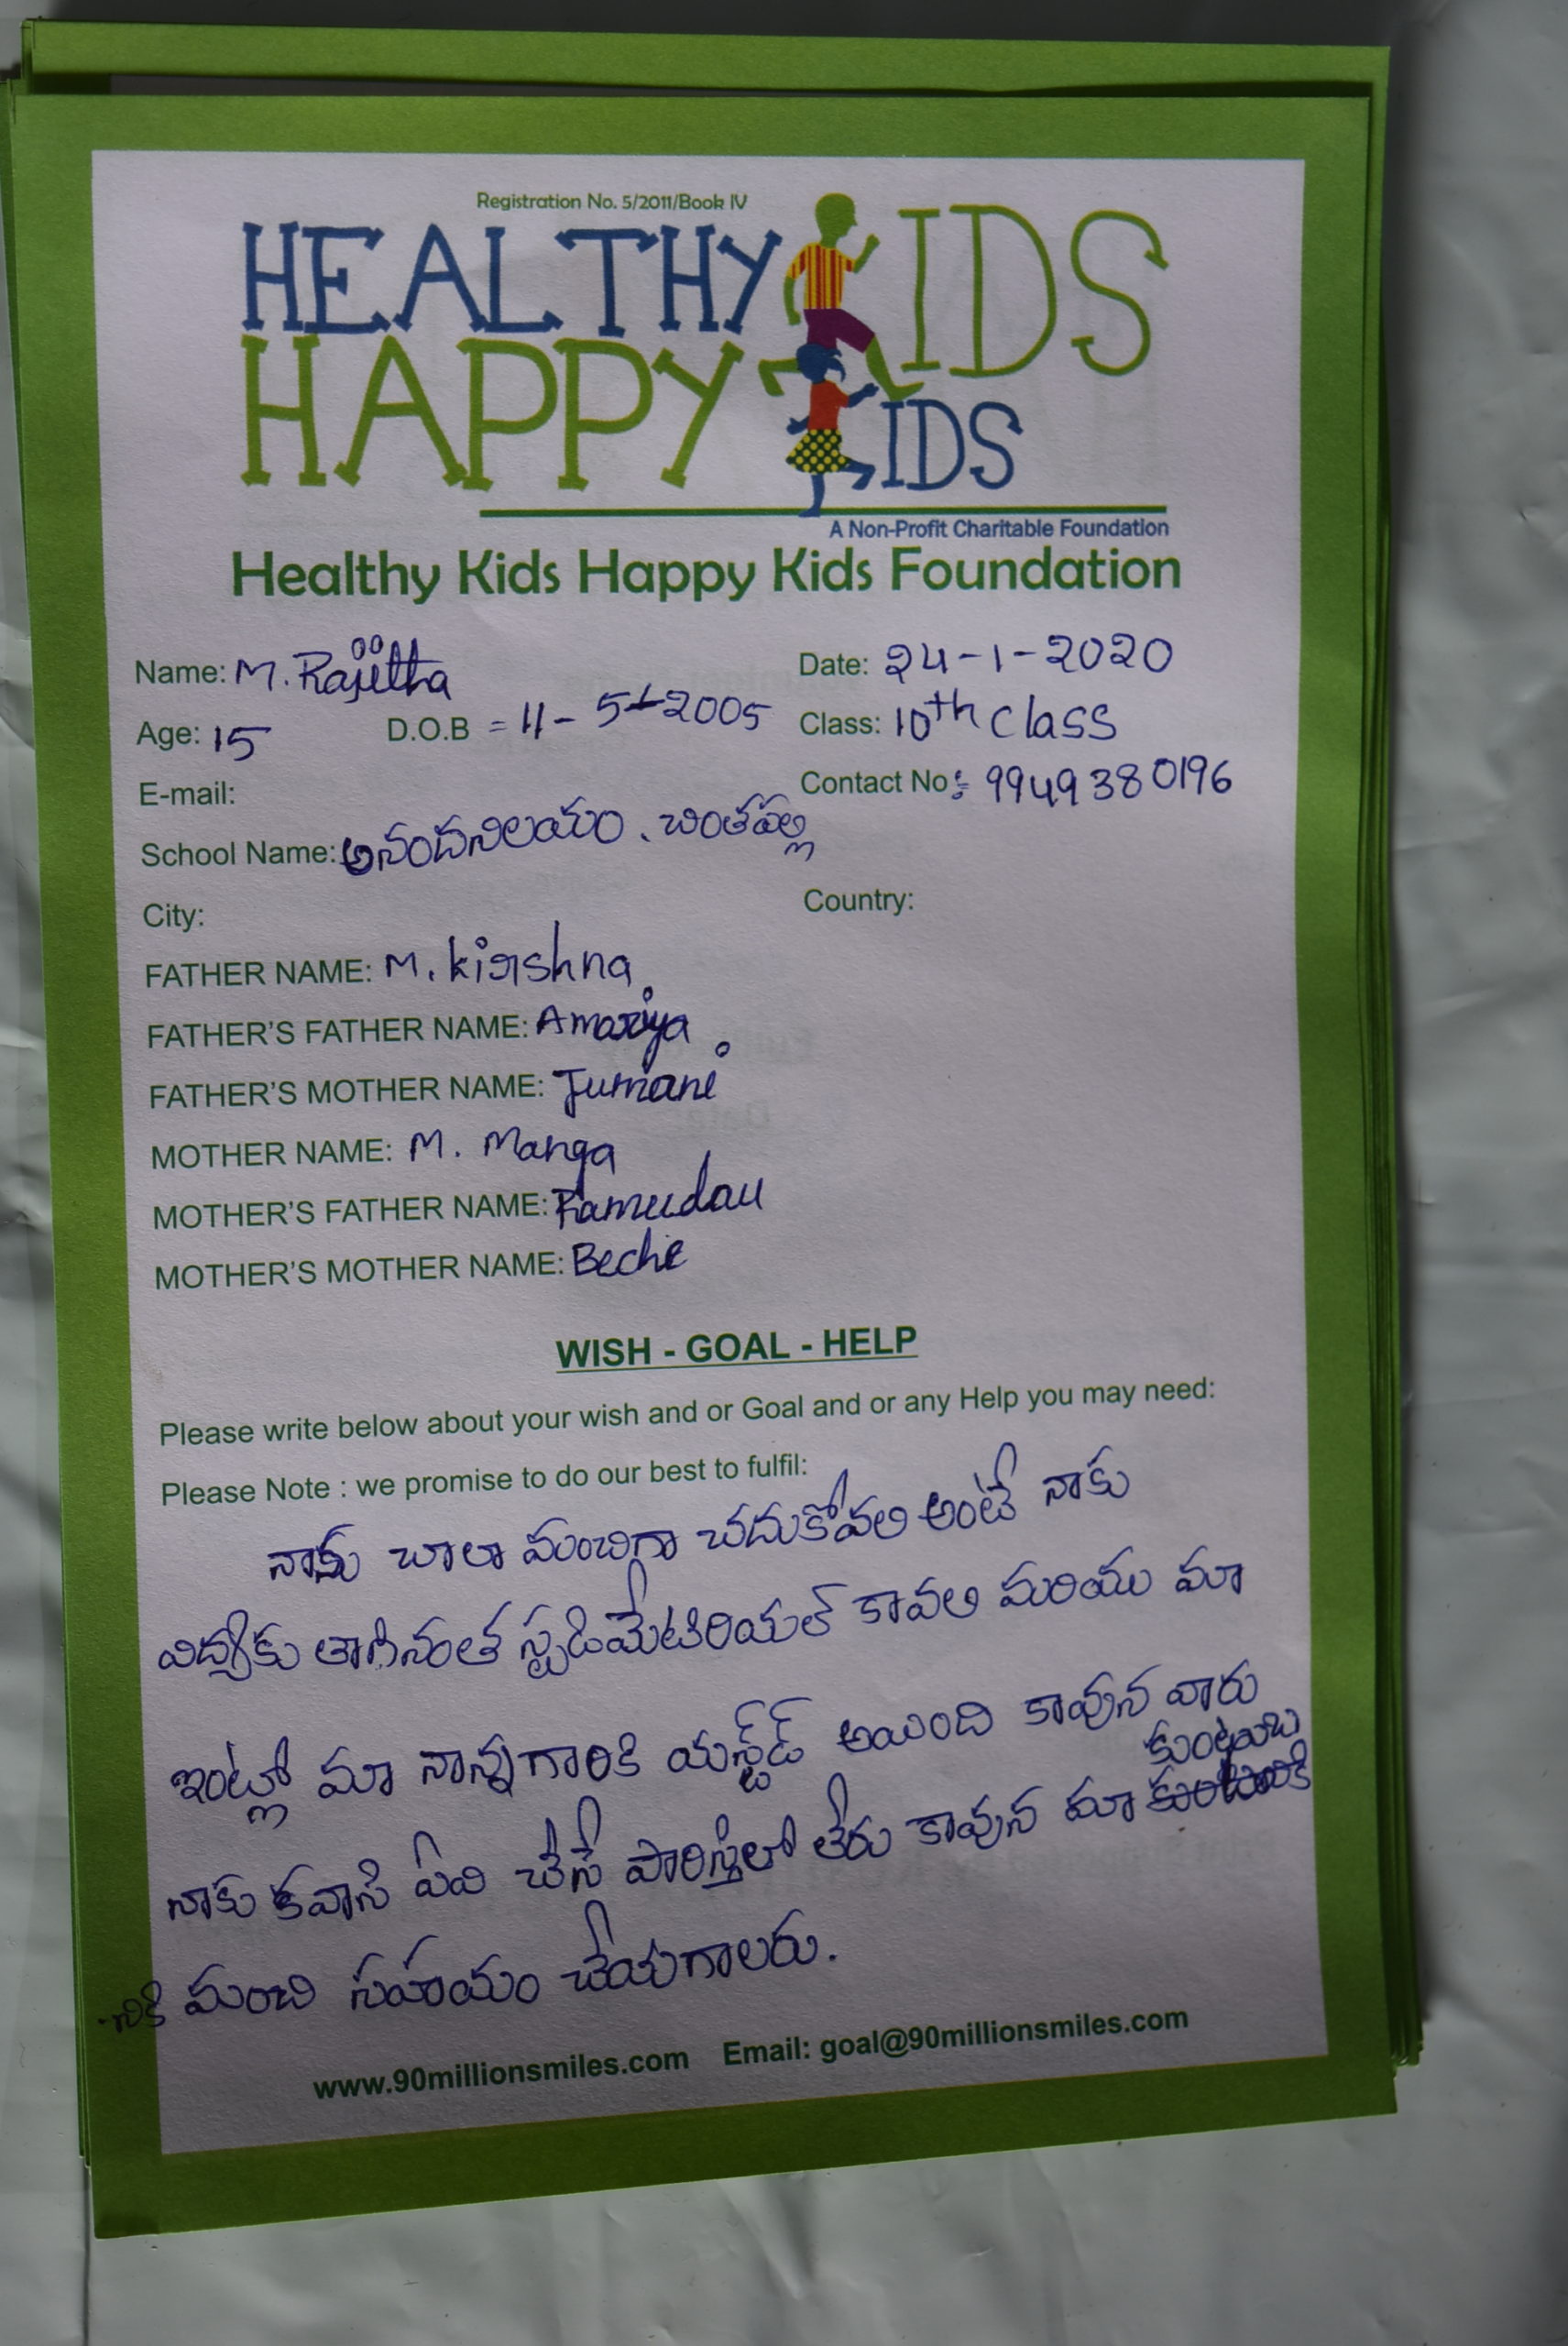 Registration No. 5/2011/Book IV
HEALTHY KIDS
HAPPY KIDS
A Non-Profit Charitable Foundation
Healthy Kids Happy Kids Foundation
Name: M. Rajitha Date: 24-1-2020
Age: 15 D.O.B = 11- 5-2005 Class: 10th class
E-mail: Contact No: 9949380196
School Name: అనందనిలయం. చింతపల్లి
City: Country:
FATHER NAME: M. kirshna
FATHER'S FATHER NAME: Amariya
FATHER'S MOTHER NAME: Jumani
MOTHER NAME: M. Manga
MOTHER'S FATHER NAME: Ramudau
MOTHER'S MOTHER NAME: Beche
WISH - GOAL - HELP
Please write below about your wish and or Goal and or any Help you may need:
Please Note : we promise to do our best to fulfil:
నాకు చాలా మంచిగా చదుకోవలి అంటే నాకు
విద్యకు తాగినంత స్టడిమేటిరియల్ కావలి మరియు మా
ఇంట్లో మా నాన్నగారికి యస్ట్డ్ అయింది కావున వారు
నాకు కవాసి ఏవి చేసే పారిస్తిలో లేరు కావున మా కుంటుబ
నికి మంచి సహయం చేయగాలరు.
www.90millionsmiles.com Email: goal@90millionsmiles.com